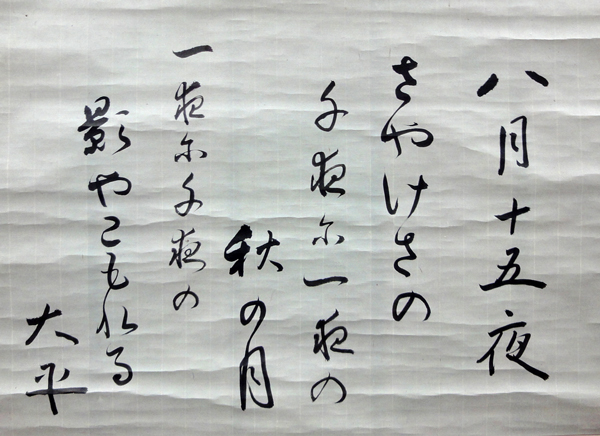 八月十五夜
さやけさの
千夜尓一夜の
秋の月
一夜尓千夜の
影やこもれる
大平